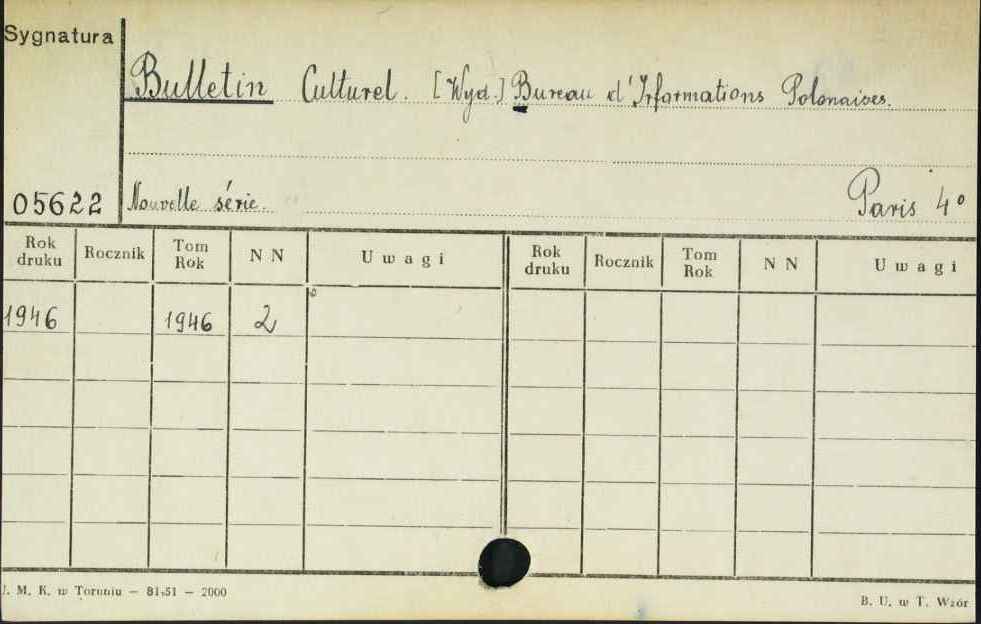 Sygnatura
Bulletin Culturel. [Wyd.] Bureau d'Informations Polonaises.
05622 Nouvelle série. Paris 4°
Rok druku Rocznik Tom Rok N N Uwagi Rok druku Rocznik Tom Rok N N Uwagi
1946 1946 2
U. M. K. w Toruniu — 81-51 — 2000
B. U. w T. Wzór